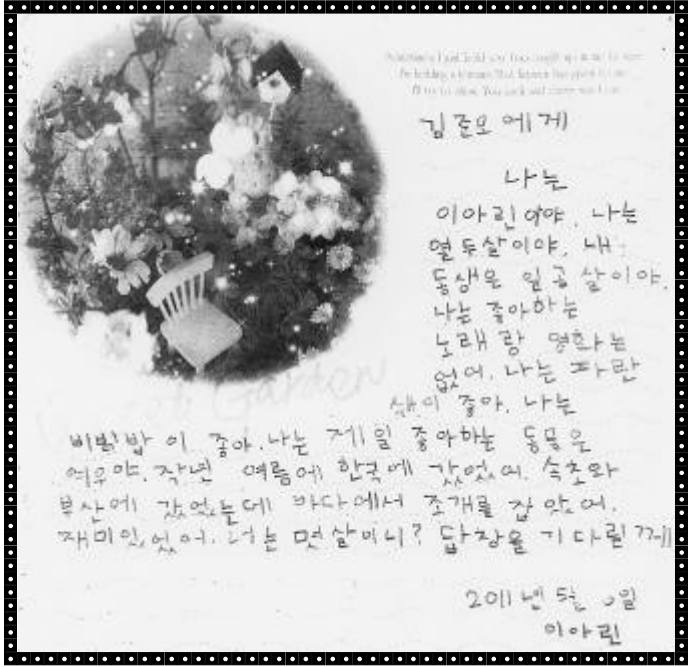 김준모에게
나는
이아린이야. 나는
열두살이야. 내
동생은 일곱살이야.
나는 좋아하는
노래랑 영화는
없어. 나는 파란
색이 좋아. 나는
비빔밥이 좋아. 나는 제일 좋아하는 동물은
여우야. 작년 여름에 한국에 갔었어. 속초와
부산에 갔었는데 바다에서 조개를 잡았어.
재미있었어. 너는 몇살이니? 답장을 기다릴께
2011년 5월 일
이아린
Secret Garden